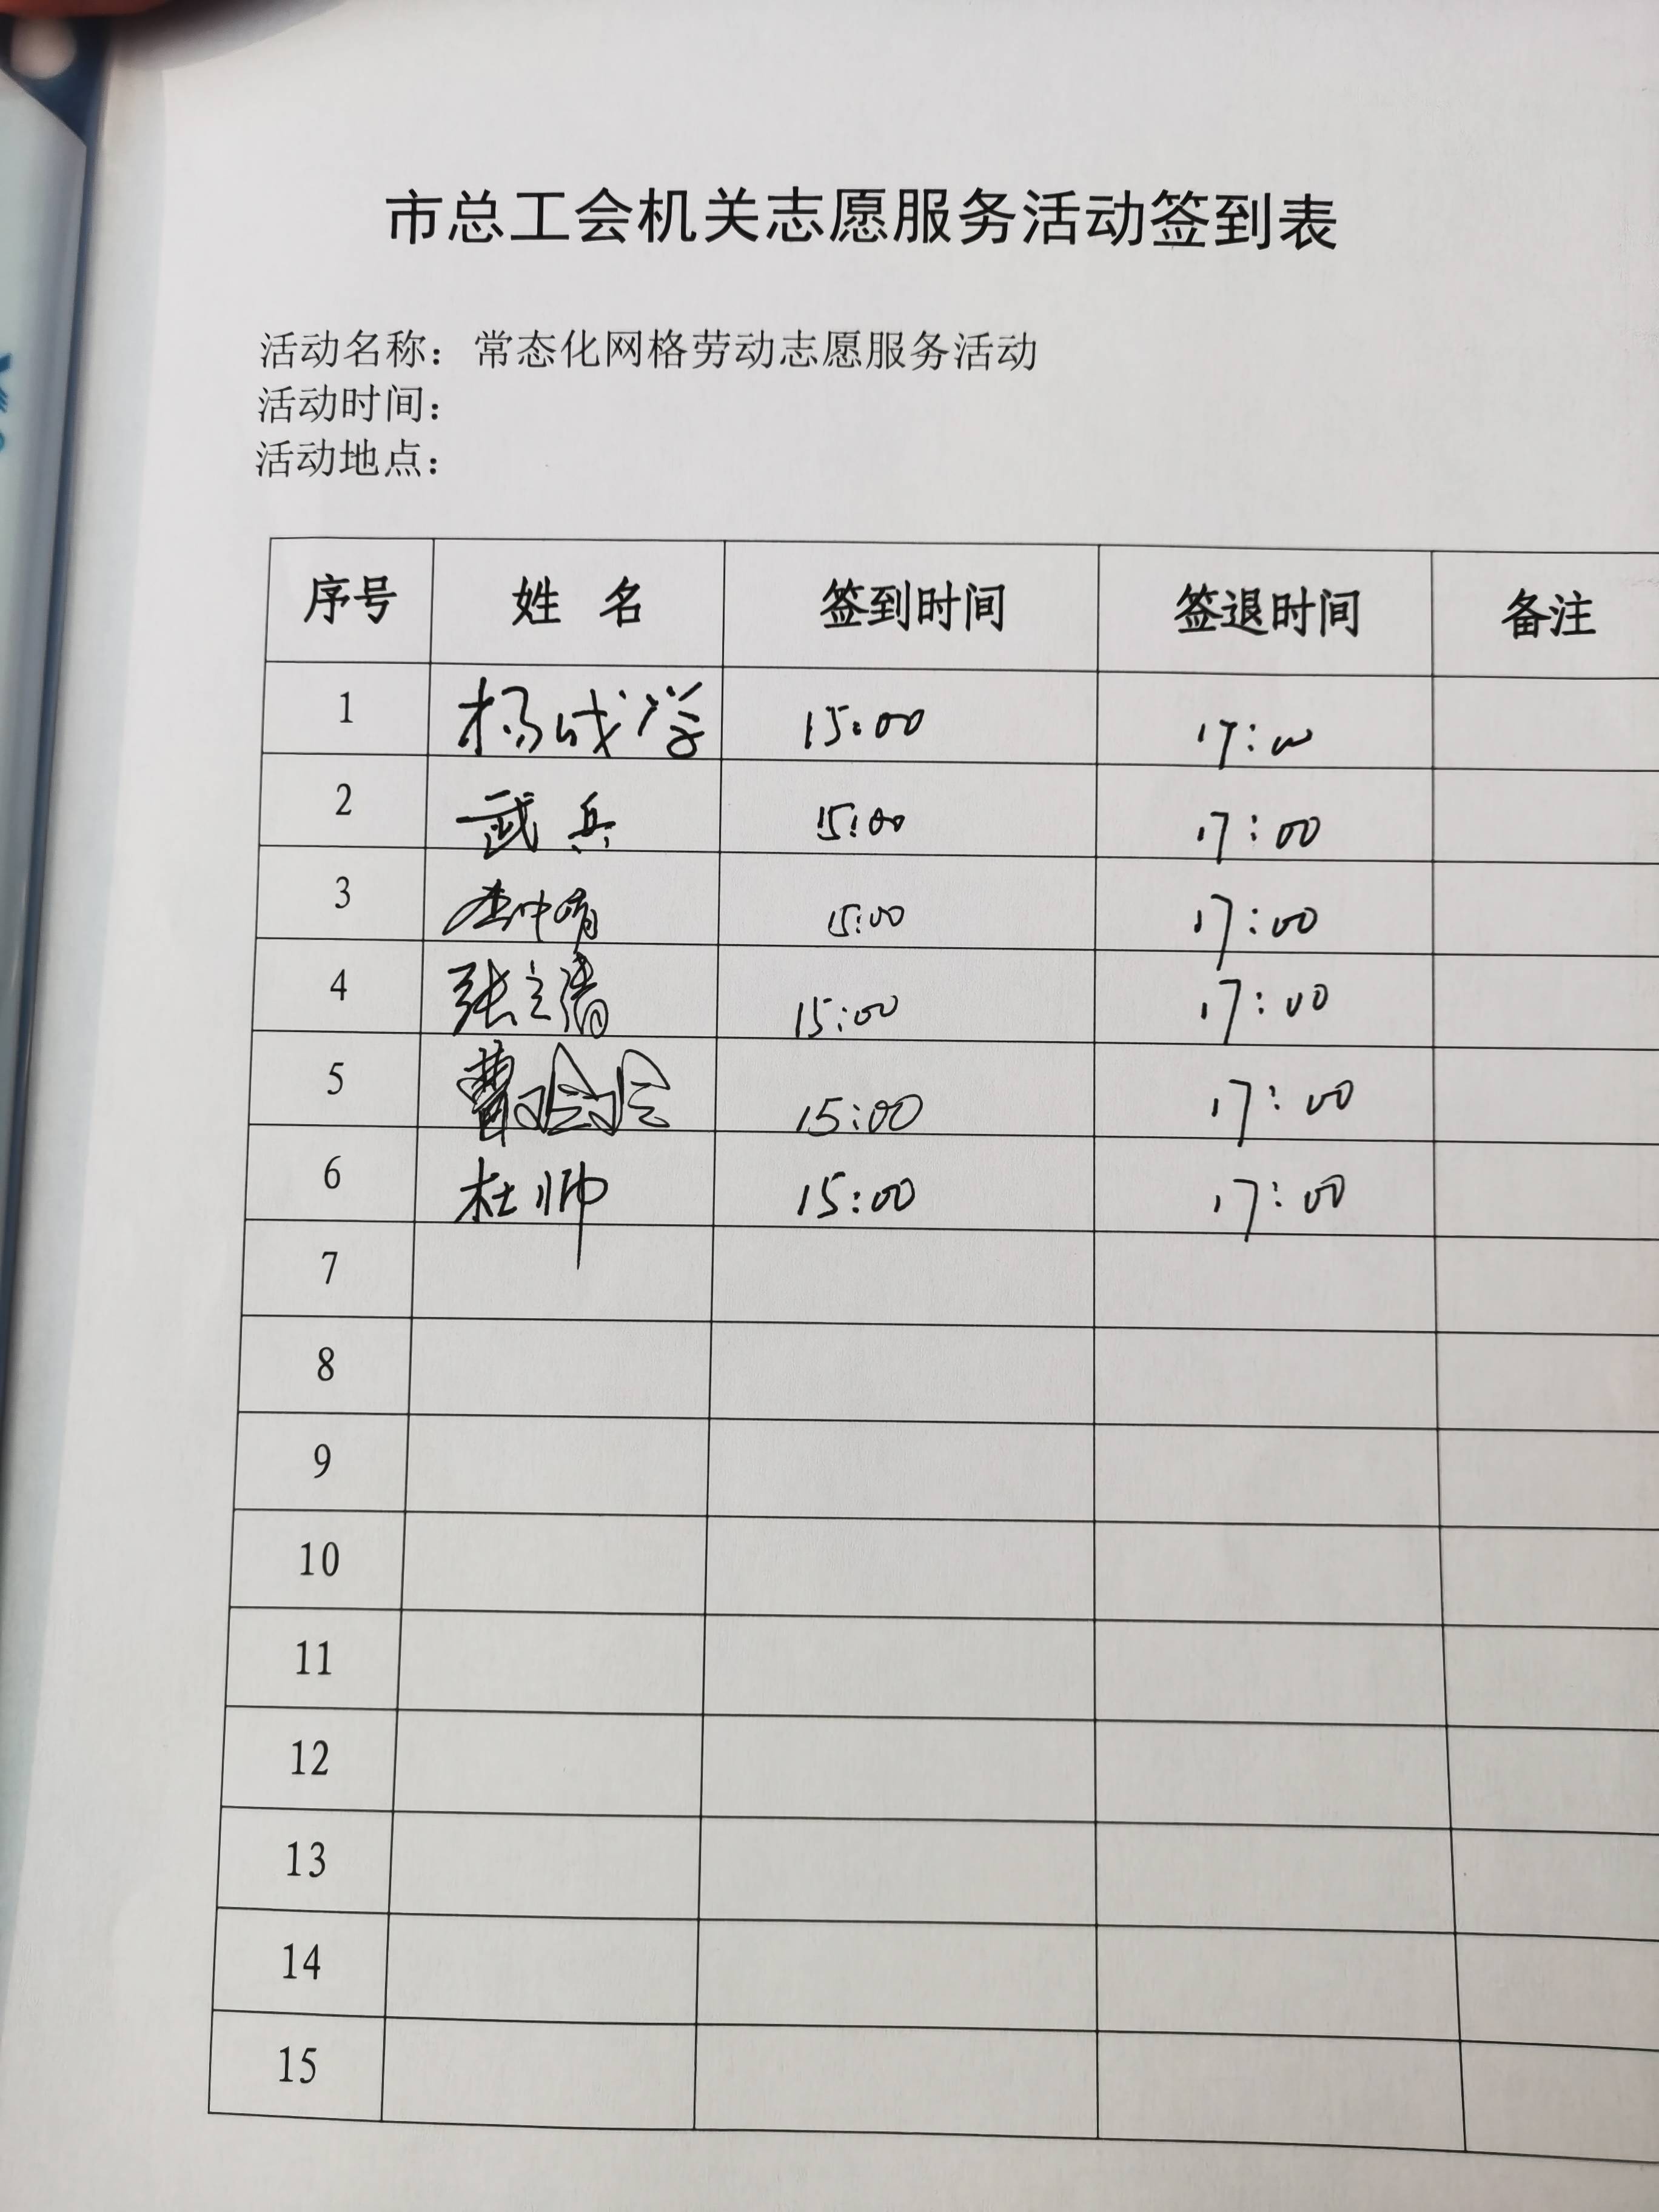 市总工会机关志愿服务活动签到表
活动名称：常态化网格劳动志愿服务活动
活动时间：
活动地点：
序号 姓 名 签到时间 签退时间 备注
1 杨成学 15:00 17:00
2 武兵 15:00 17:00
3 15:00 17:00
4 张立涛 15:00 17:00
5 曹 15:00 17:00
6 杜帅 15:00 17:00
7
8
9
10
11
12
13
14
15